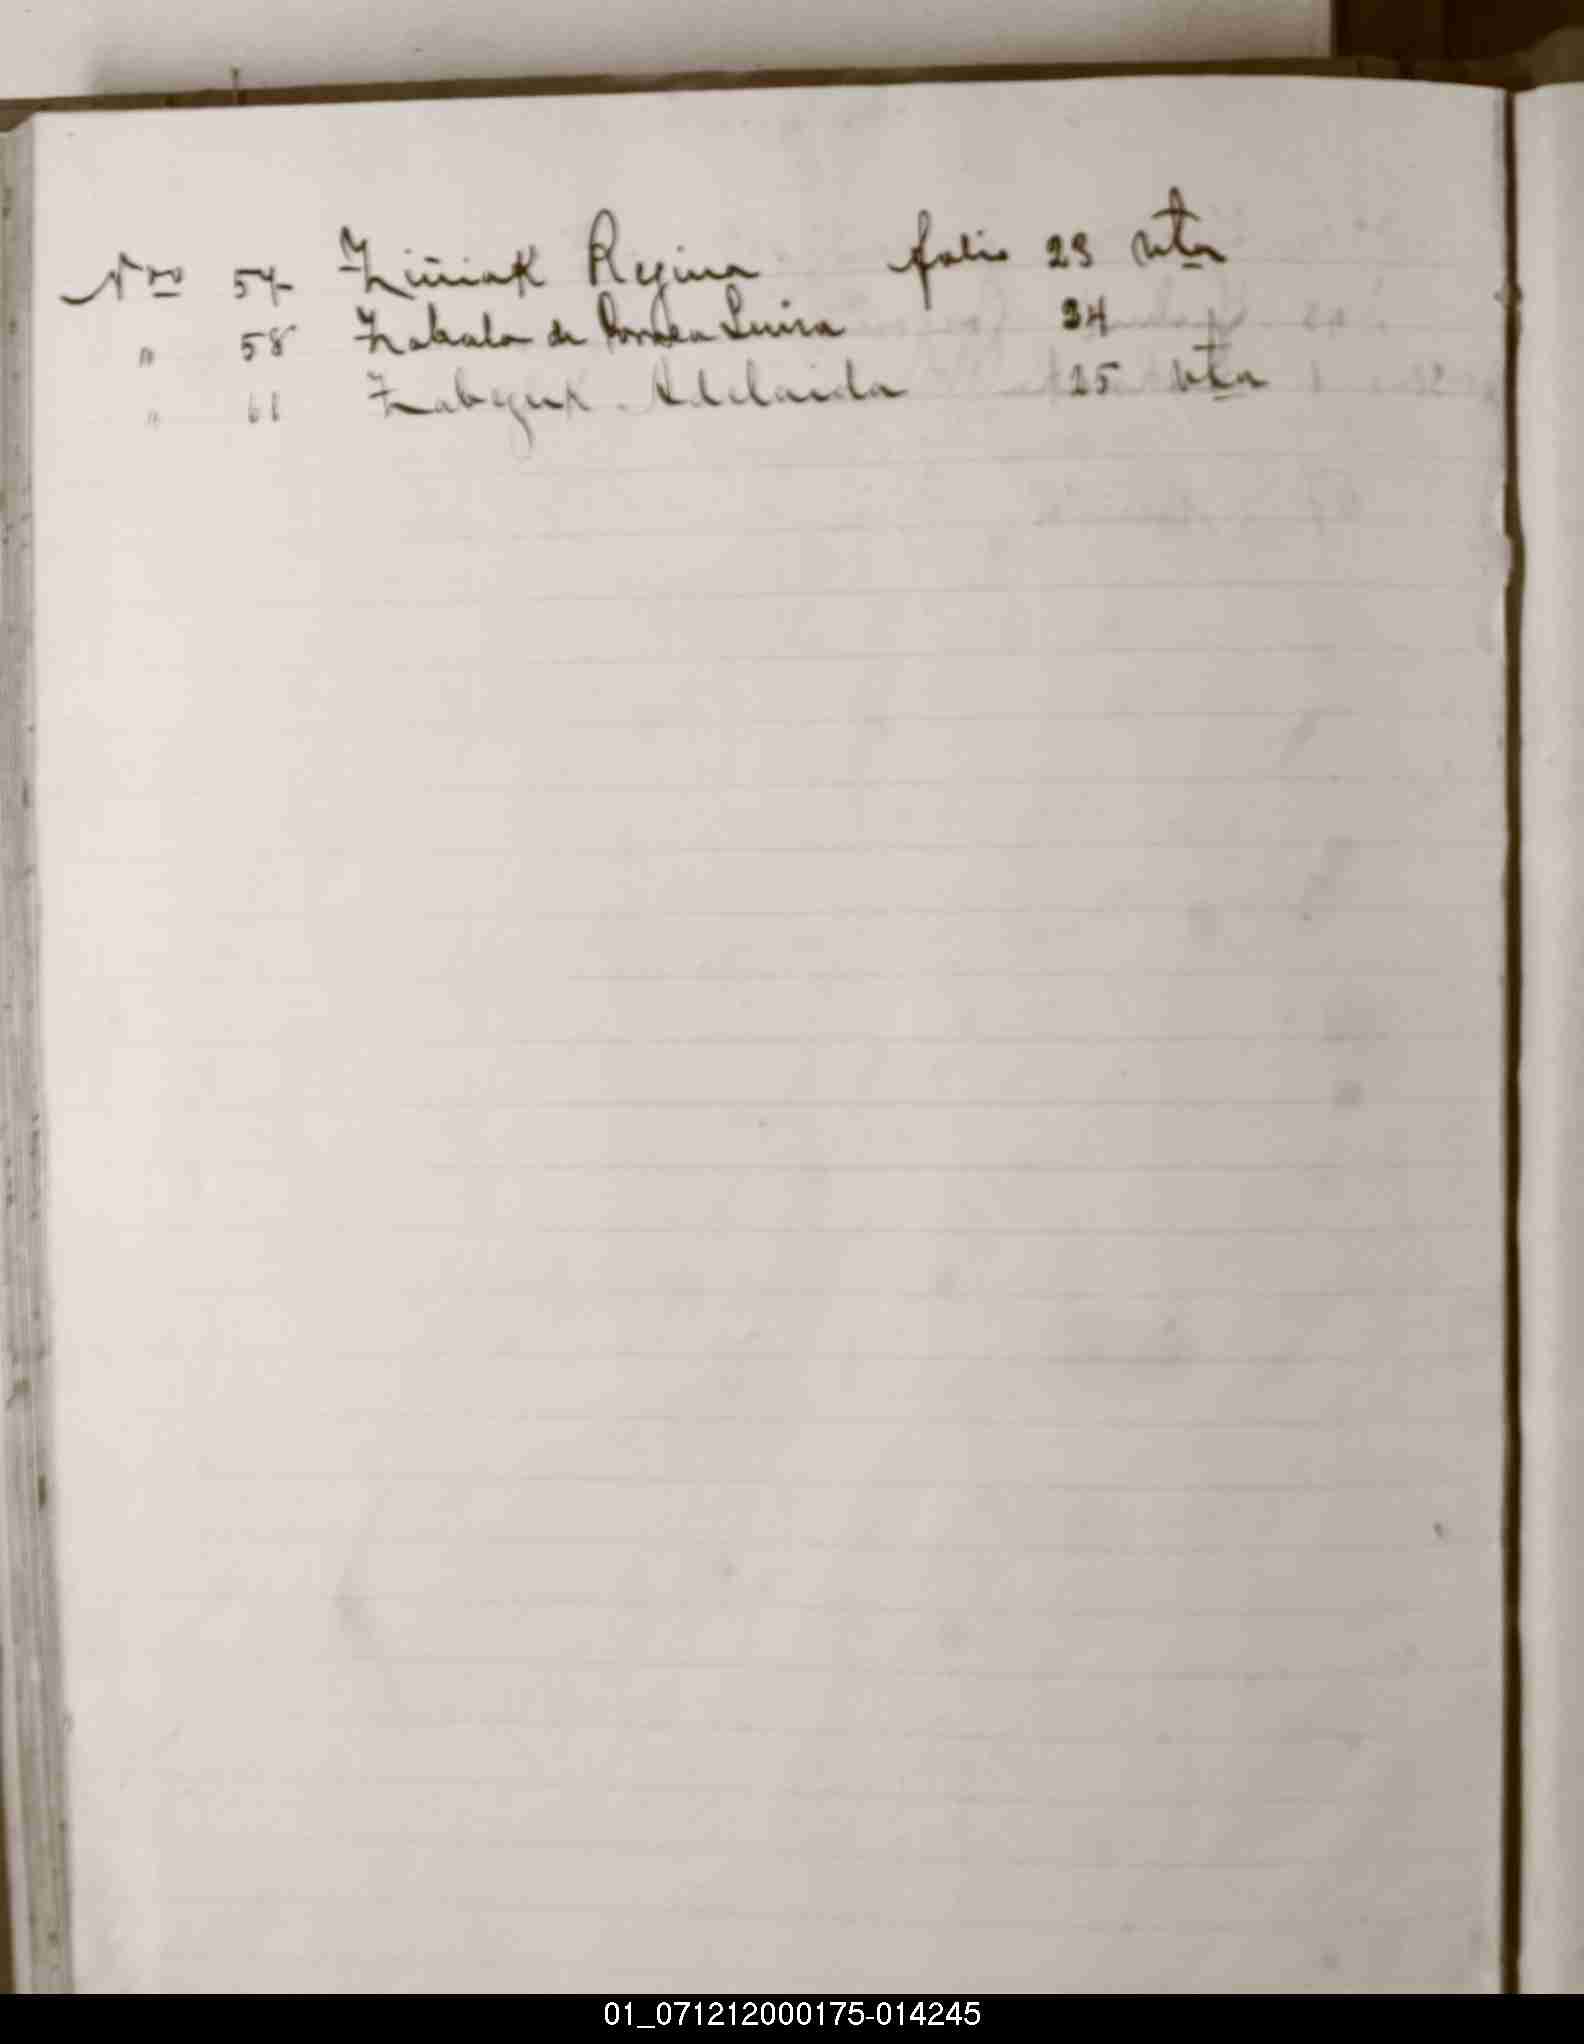 Nro 57 Ziniak Regina folio 23 vta
" 58 Zabala de Luisa 24
" 61 Adelaida 25 vta
01_071212000175-014245